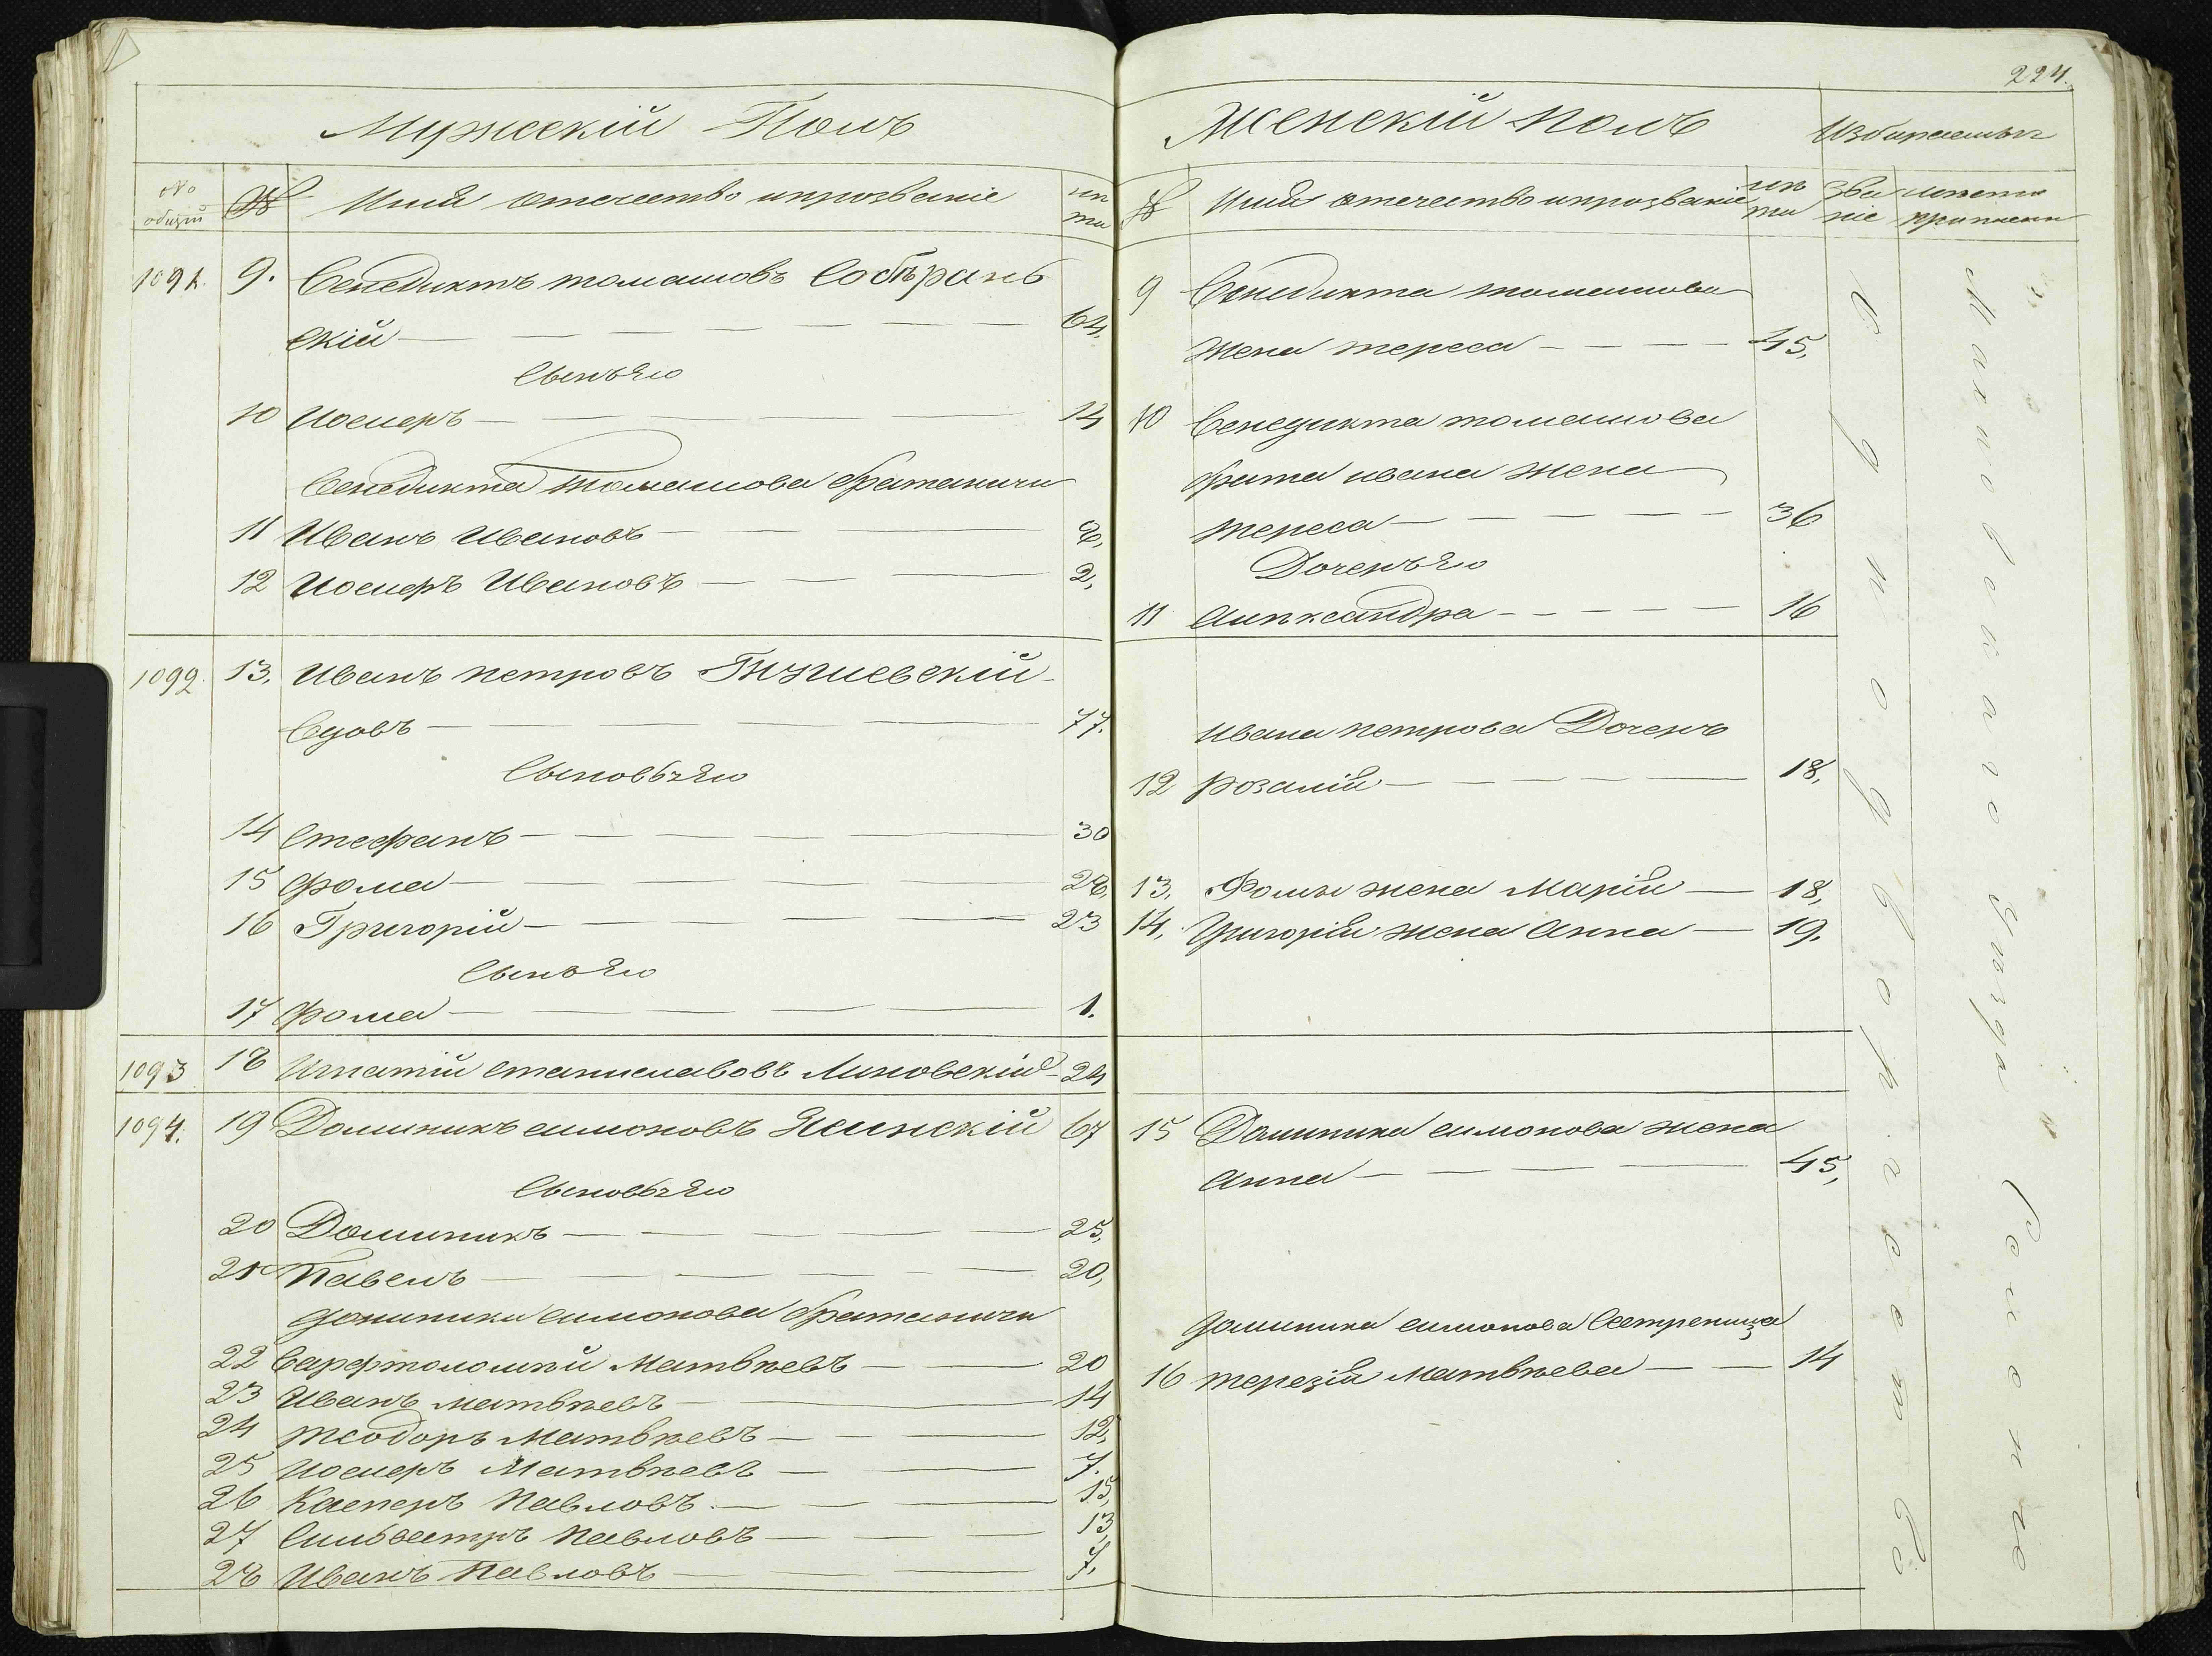 Мужескій Полъ
№ общій
№
Имя отечество и прозваніе
лѣ та
1091.
9. Венедиктъ томашовъ Собѣрань
скій — 64,
Сынъ Его
10 Иосифъ — 14
Венедикта Томашова братаничи
11 Иванъ Ивановъ — 8,
12 Иосифъ Ивановъ — 2,
1092. 13. Иванъ петровъ
Вдовъ — 77.
Сыновья Его
14 Стефанъ — 30
15 Фома — 28,
16 Григорій — 23
Сынъ Его
17 Фома — 1.
1093 18 Игнатій станиславовъ Линовскій — 24
1094. 19 Доминикъ симоновъ Ясинскій 67
Сыновья Его
20 Доминикъ — 25,
21 Павелъ — 20,
Доминика симонова братаничи
22 Варфтоломѣй Матвѣевъ — 20
23 Иванъ Матвѣевъ — 14
24 теодоръ Матвѣевъ — 12,
25 Иосифъ Матвѣевъ — 7.
26 Касперъ Павловъ — 15,
27 Сильвестръ Павловъ — 13,
28 Иванъ Павловъ — 7.
224.
Женскій Полъ
№
Имя отечество и прозваніе
лѣ та
зва ніе
9 Венедикта томашова
жена тереса — 45,
10 Венедикта томашова
брата ивана жена
тереса — 36
Дочерь Его
11 Алѣксандра — 16
Ивана петрова Дочерь
12 розалія — 18,
13. Фомы жена Марія — 18,
14. Григорія жена Анна — 19.
15 Доминика симонова жена
Анна — 45,
Доминика симонова Сестреница
16 терезія Матвѣева — 14
въ однодворчествѣ
Махновскаго уѣзда